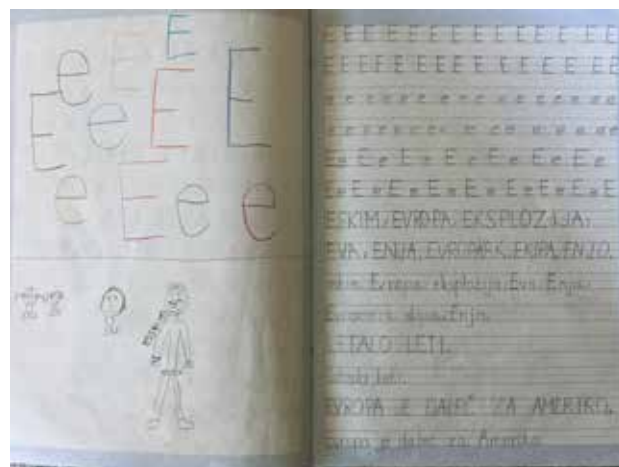 E
e E
e E E
E e
e E e e
E E E E E E E E E E E E E E E
E E E E E E E E E E E E E E
e e e e e e e e e e e e e e
e e e e e e e e e e e e e e
E e E e E e E e E e E e E e
E e E e E e E e E e E e E e E
ESKIM, EVROPA, EKSPLOZIJA,
EVA, ENIJA, EVROPARK, EKIPA, ENJO.
Evropa, eksplozija, Eva, Enija,
ekipa, Enjo.
LETALO LETI.
leti.
EVROPA JE DALEČ ZA AMERIKO.
Evropa je daleč za Ameriko.